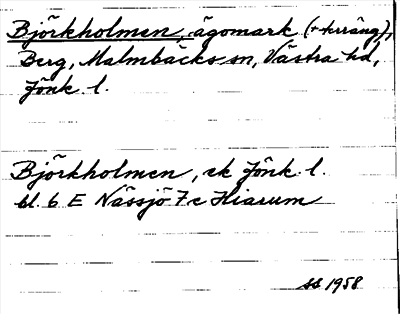 Björkholmen, ägomark (+ kärräng),
Berg, Malmbäcks sn, Västra hd,
Jönk. l.
Björkholmen, ek Jönk. l.
bl. 6 E Nässjö 7 c Hiarum
SS 1958